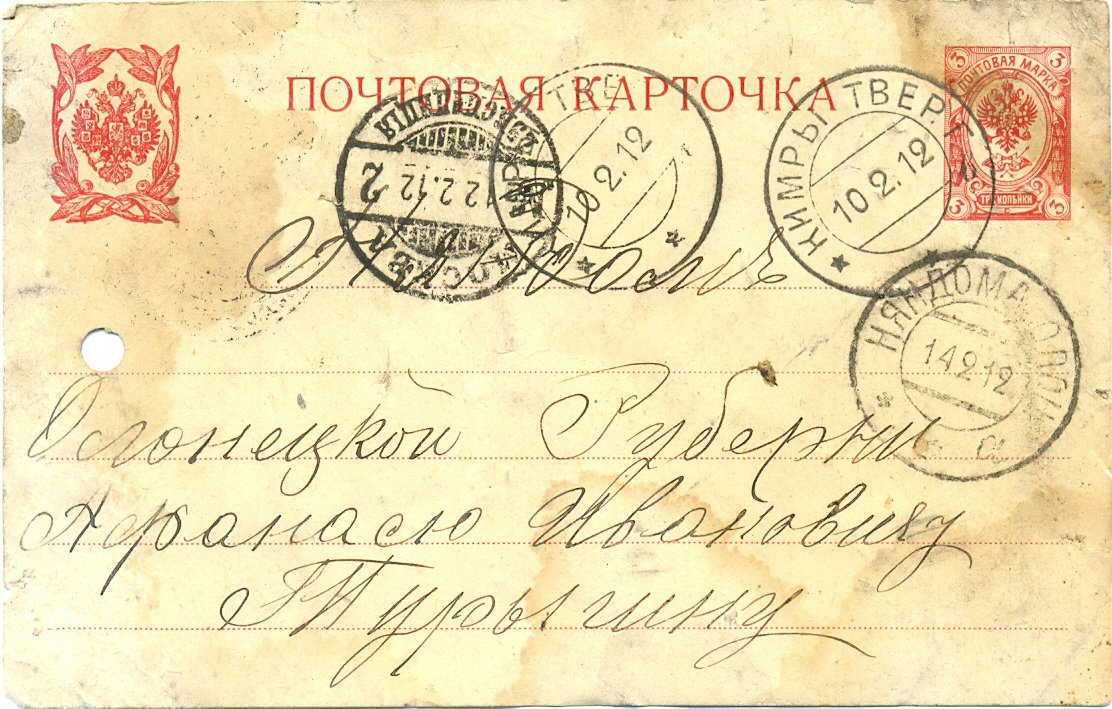 ПОЧТОВАЯ КАРТОЧКА
3 ПОЧТОВАЯ МАРКА 3
3 ТРИ КОПѢЙКИ 3
КИМРЫ ТВЕР Г
10.2.12
ТВЕ
10.2.12
МОСКВА
12.2.12
2
НЯНДОМА ОЛОН
14 2 12
Олонецкой Губерніи
Афанасю Ивановичу
Турыгину